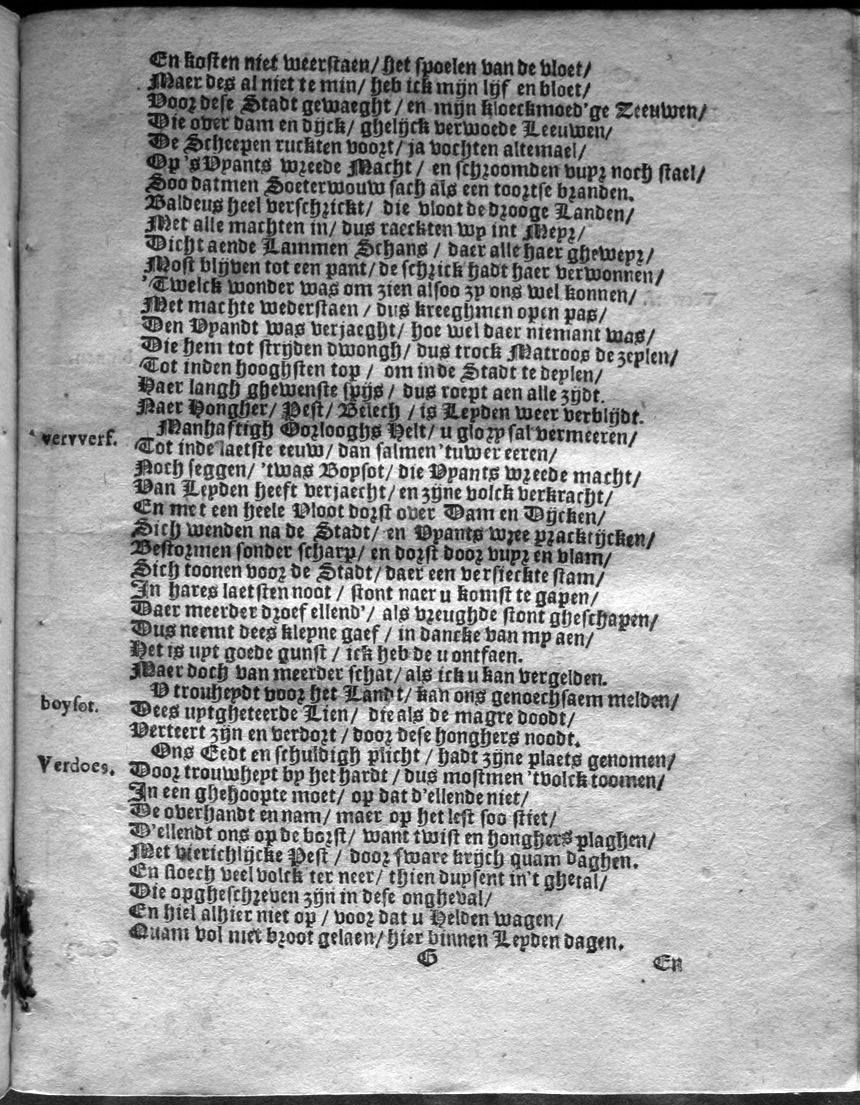 En kosten niet weerstaen/ het spoelen van de vloet/
Maer des al niet te min/ heb ick mijn lijf en bloet/
Voor dese Stadt gewaeght/ en mijn kloeckmoed'ge Zeeuwen/
Die over dam en dijck/ ghelijck verwoede Leeuwen/
De Scheepen ruckten voort/ ja vochten altemael/
Op 'sVyants wreede Macht/ en schroomden vuyr noch stael/
Soo datmen Soeterwouw sach als een toortse branden.
Baldeus heel verschrickt/ die vloot de drooge Landen/
Met alle machten in/ dus raeckten wy int Meyr/
Dicht aende Lammen Schans/ daer alle haer gheweyr/
Most blijven tot een pant/ de schrick hadt haer verwonnen/
'Twelck wonder was om zien alsoo zy ons wel konnen/
Met machte wederstaen/ dus kreeghmen open pas/
Den Vyandt was verjaeght/ hoe wel daer niemant was/
Die hem tot strijden dwongh/ dus trock Matroos de zeylen/
Tot inden hooghsten top/ om in de Stadt te deylen/
Haer langh ghewenste spijs/ dus roept aen alle zijdt.
Naer Hongher/ Pest/ Belech/ is Leyden weer verblijdt.
vervverf. Manhaftigh Oorlooghs Helt/ u glory sal vermeeren/
Tot inde laetste eeuw/ dan salmen 'tuwer eeren/
Noch seggen/ 'twas Boysot/ die Vyants wreede macht/
Van Leyden heeft verjaecht/ en zijne volck verkracht/
En met een heele Vloot dorst over Dam en Dijcken/
Sich wenden na de Stadt/ en Vyants wree practijcken/
Bestormen sonder scharp/ en dorst door vuyr en vlam/
Sich toonen voor de Stadt/ daer een versieckte stam/
In hares laetsten noot/ stont naer u komst te gapen/
Daer meerder droef ellend'/ als vreughde stont gheschapen/
Dus neemt dees kleyne gaef/ in dancke van my aen/
Het is uyt goede gunst/ ick heb de u ontfaen.
Maer doch van meerder schat/ als ick u kan vergelden.
boysot. V trouheydt voor het Landt/ kan ons genoechsaem melden/
Dees uytgheteerde Lien/ die als de magre doodt/
Verteert zijn en verdort/ door dese honghers noodt.
Verdoes. Ons Eedt en schuldigh plicht/ hadt zijne plaets genomen/
Door trouwheyt by het hardt/ dus mostmen 'tvolck toomen/
In een ghehoopte moet/ op dat d'ellende niet/
De overhandt en nam/ maer op het lest soo stiet/
D'ellendt ons op de borst/ want twist en honghers plaghen/
Met vierichlijcke Pest/ door sware krijch quam daghen.
En sloech veel volck ter neer/ thien duysent in't ghetal/
Die opgheschreven zijn in dese ongheval/
En hiel alhier niet op/ voor dat u Helden wagen/
Quam vol met broot gelaen/ hier binnen Leyden dagen.
G En